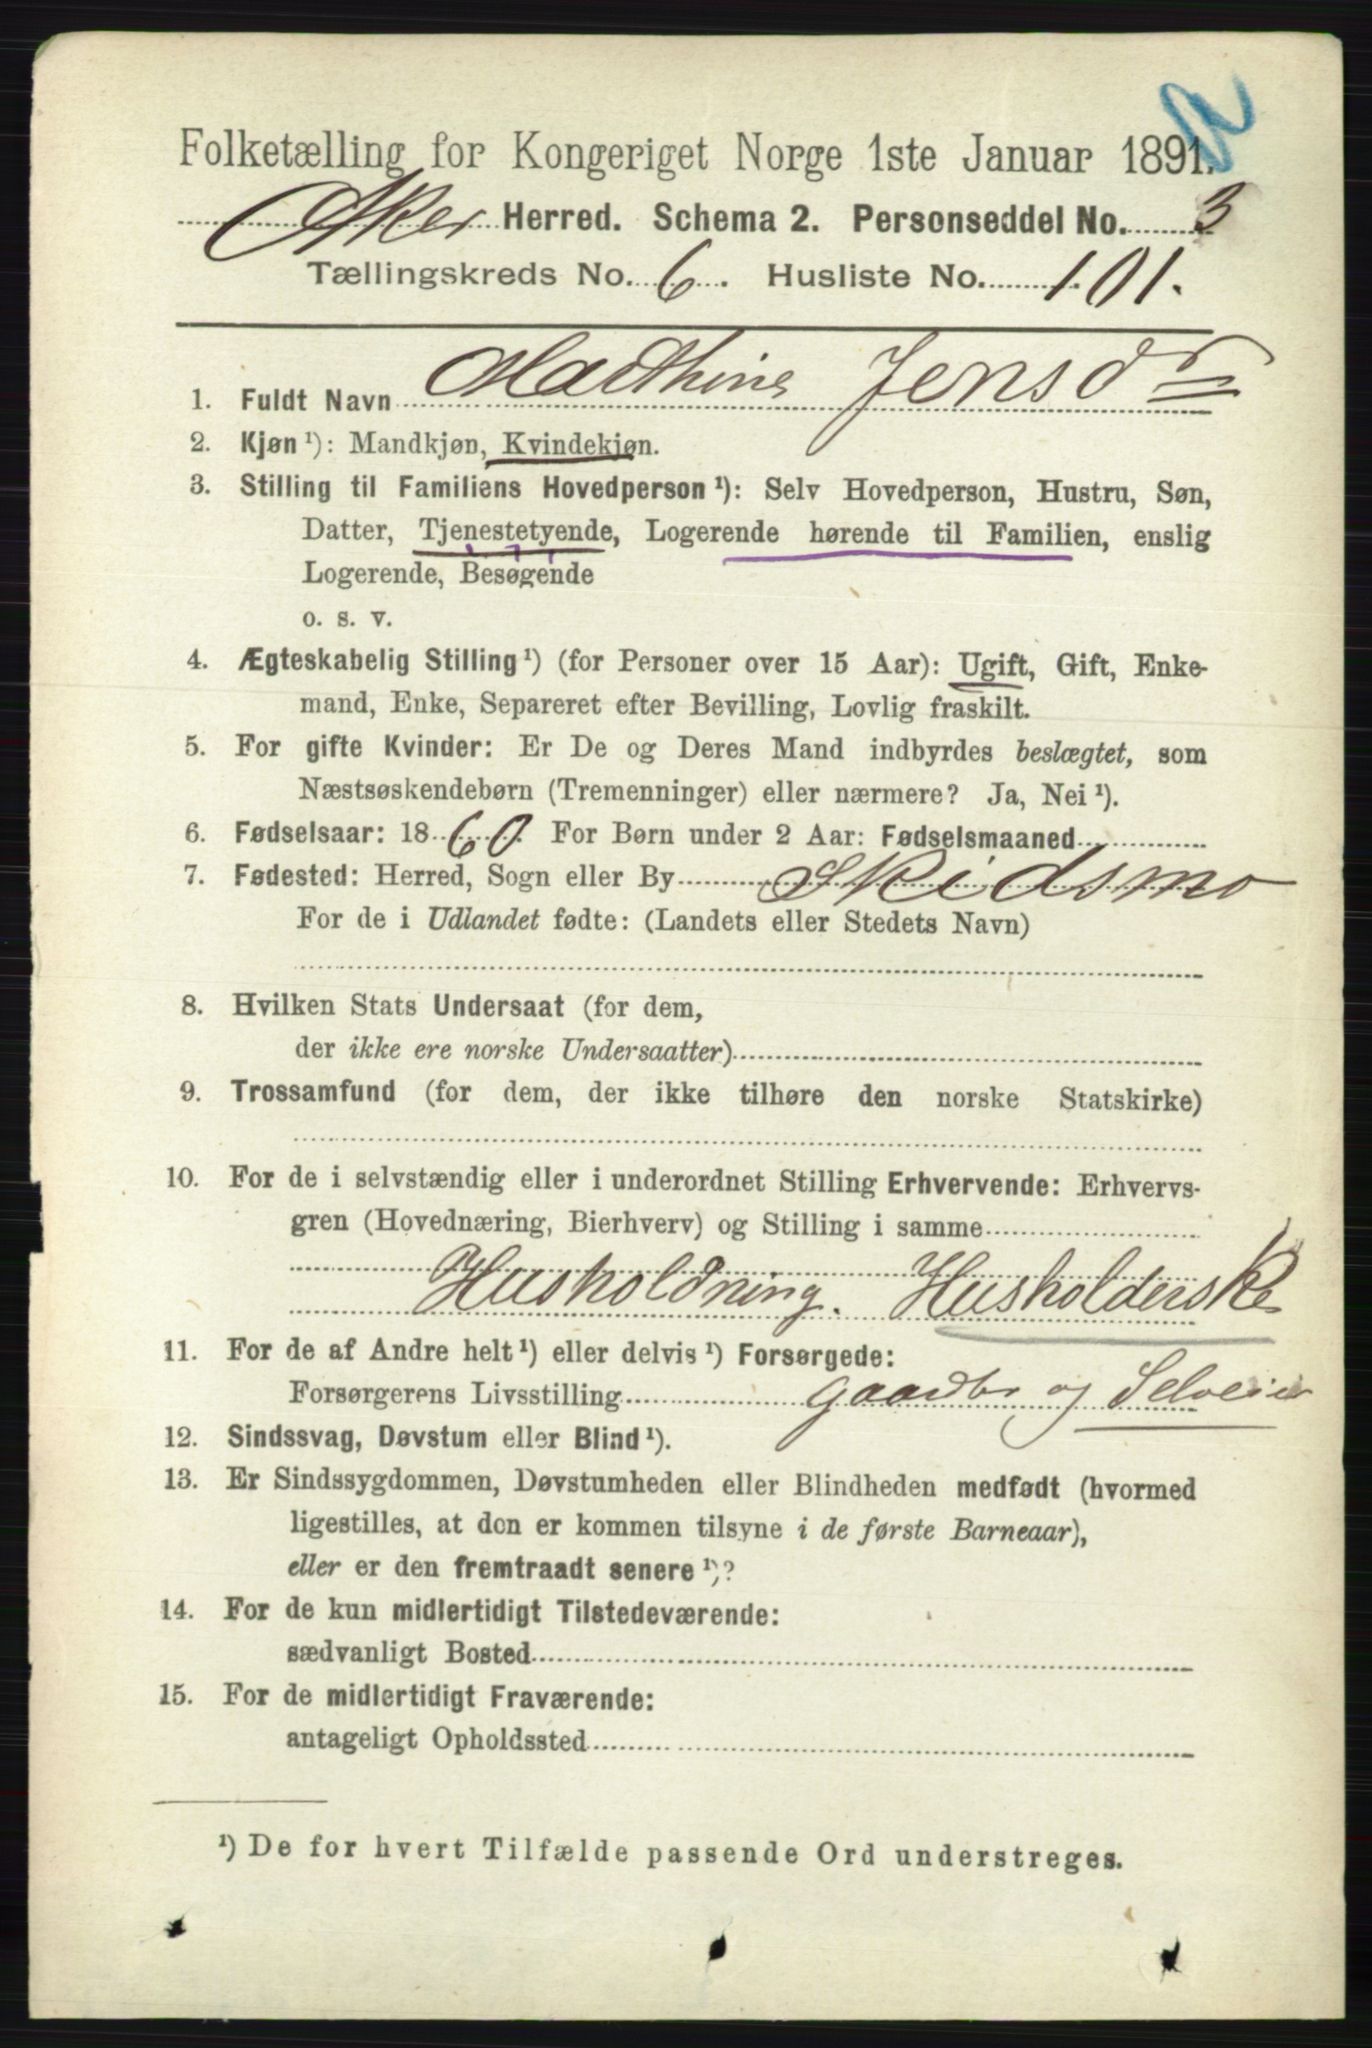 Folketælling for Kongeriget Norge 1ste Januar 1891.
Aker Herred. Schema 2. Personseddel No. 3
Tællingskreds No. 6. Husliste No. 101.
1. Fuldt Navn Mathine Jensdr
2. Kjøn ¹): Mandkjøn, Kvindekjøn.
3. Stilling til Familiens Hovedperson ¹): Selv Hovedperson, Hustru, Søn,
Datter, Tjenestetyende, Logerende hørende til Familien, enslig
Logerende, Besøgende
o. s. v.
4. Ægteskabelig Stilling ¹) (for Personer over 15 Aar): Ugift, Gift, Enke-
mand, Enke, Separeret efter Bevilling, Lovlig fraskilt.
5. For gifte Kvinder: Er De og Deres Mand indbyrdes beslægtet, som
Næstsøskendebørn (Tremenninger) eller nærmere? Ja, Nei ¹).
6. Fødselsaar: 1860. For Børn under 2 Aar: Fødselsmaaned
7. Fødested: Herred, Sogn eller By Skidsmo
For de i Udlandet fødte: (Landets eller Stedets Navn)
8. Hvilken Stats Undersaat (for dem,
der ikke ere norske Undersaatter)
9. Trossamfund (for dem, der ikke tilhøre den norske Statskirke)
10. For de i selvstændig eller i underordnet Stilling Erhvervende: Erhvervs-
gren (Hovednæring, Bierhverv) og Stilling i samme
Husholdning. Husholderske
11. For de af Andre helt ¹) eller delvis ¹) Forsørgede:
Forsørgerens Livsstilling Gaardbr og Selveier
12. Sindssvag, Døvstum eller Blind ¹).
13. Er Sindssygdommen, Døvstumheden eller Blindheden medfødt (hvormed
ligestilles, at den er kommen tilsyne i de første Barneaar),
eller er den fremtraadt senere ¹)?
14. For de kun midlertidigt Tilstedeværende:
sædvanligt Bosted
15. For de midlertidigt Fraværende:
antageligt Opholdssted
¹) De for hvert Tilfælde passende Ord understreges.